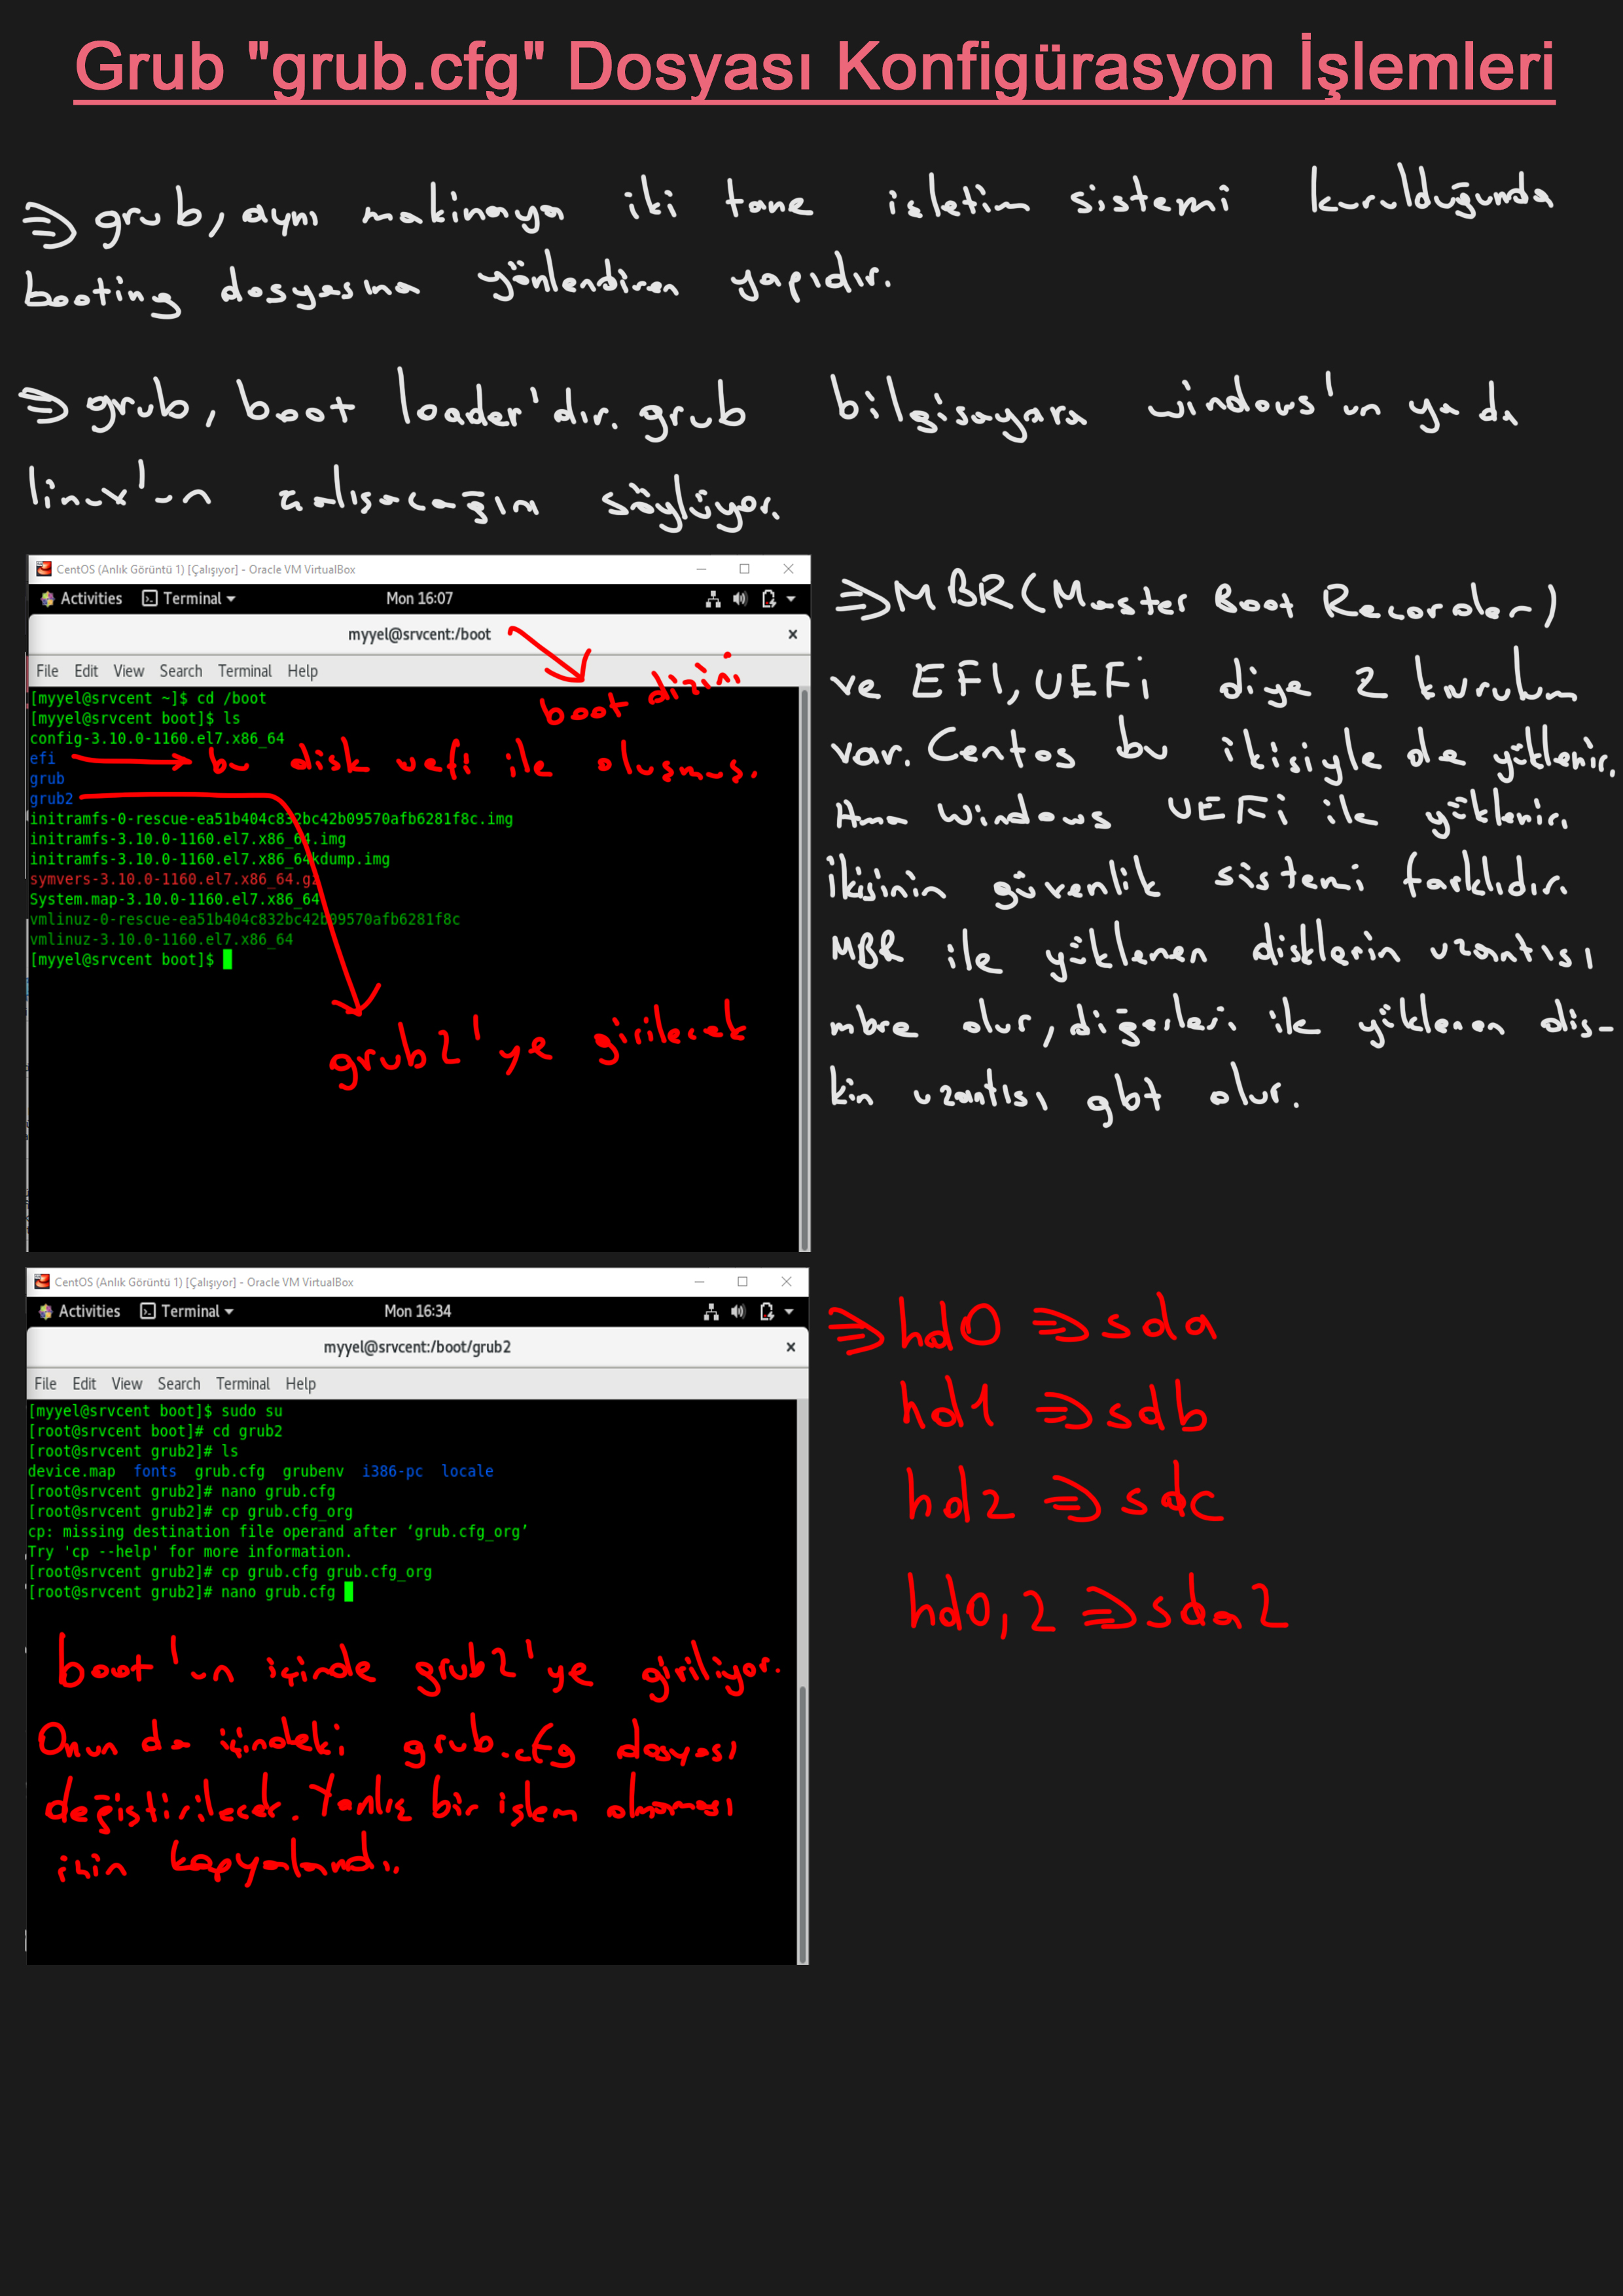 Grub "grub.cfg" Dosyası Konfigürasyon İşlemleri
⇒ grub, aynı makinaya iki tane işletim sistemi kurulduğunda
booting dosyasına yönlendiren yapıdır.
⇒ grub, boot loader'dır. grub bilgisayara windows'un ya da
linux'un çalışacağını söylüyor.
CentOS (Anlık Görüntü 1) [Çalışıyor] - Oracle VM VirtualBox
Activities Terminal Mon 16:07
myyel@srvcent:/boot
File Edit View Search Terminal Help
boot dizini
[myyel@srvcent ~]$ cd /boot
[myyel@srvcent boot]$ ls
config-3.10.0-1160.el7.x86_64
efi
bu disk uefi ile oluşmuş.
grub
grub2
initramfs-0-rescue-ea51b404c832bc42b09570afb6281f8c.img
initramfs-3.10.0-1160.el7.x86_64.img
initramfs-3.10.0-1160.el7.x86_64kdump.img
symvers-3.10.0-1160.el7.x86_64.gz
System.map-3.10.0-1160.el7.x86_64
vmlinuz-0-rescue-ea51b404c832bc42b09570afb6281f8c
vmlinuz-3.10.0-1160.el7.x86_64
[myyel@srvcent boot]$
grub2'ye girilecek
⇒ MBR (Master Boot Recorder)
ve EFI, UEFi diye 2 kurulum
var. Centos bu ikisiyle de yüklenir.
Ama Windows UEFi ile yüklenir.
ikisinin güvenlik sistemi farklıdır.
MBR ile yüklenen disklerin uzantısı
mbre olur, diğerleri ile yüklenen dis-
kin uzantısı gbt olur.
CentOS (Anlık Görüntü 1) [Çalışıyor] - Oracle VM VirtualBox
Activities Terminal Mon 16:34
myyel@srvcent:/boot/grub2
File Edit View Search Terminal Help
[myyel@srvcent boot]$ sudo su
[root@srvcent boot]# cd grub2
[root@srvcent grub2]# ls
device.map fonts grub.cfg grubenv i386-pc locale
[root@srvcent grub2]# nano grub.cfg
[root@srvcent grub2]# cp grub.cfg_org
cp: missing destination file operand after ‘grub.cfg_org’
Try 'cp --help' for more information.
[root@srvcent grub2]# cp grub.cfg grub.cfg_org
[root@srvcent grub2]# nano grub.cfg
boot'un içinde grub2'ye giriliyor.
Onun da içindeki grub.cfg dosyası
değiştirilecek. Yanlış bir işlem olmaması
için kopyalandı.
⇒ hd0 ⇒ sda
hd1 ⇒ sdb
hd2 ⇒ sdc
hd0,2 ⇒ sda2